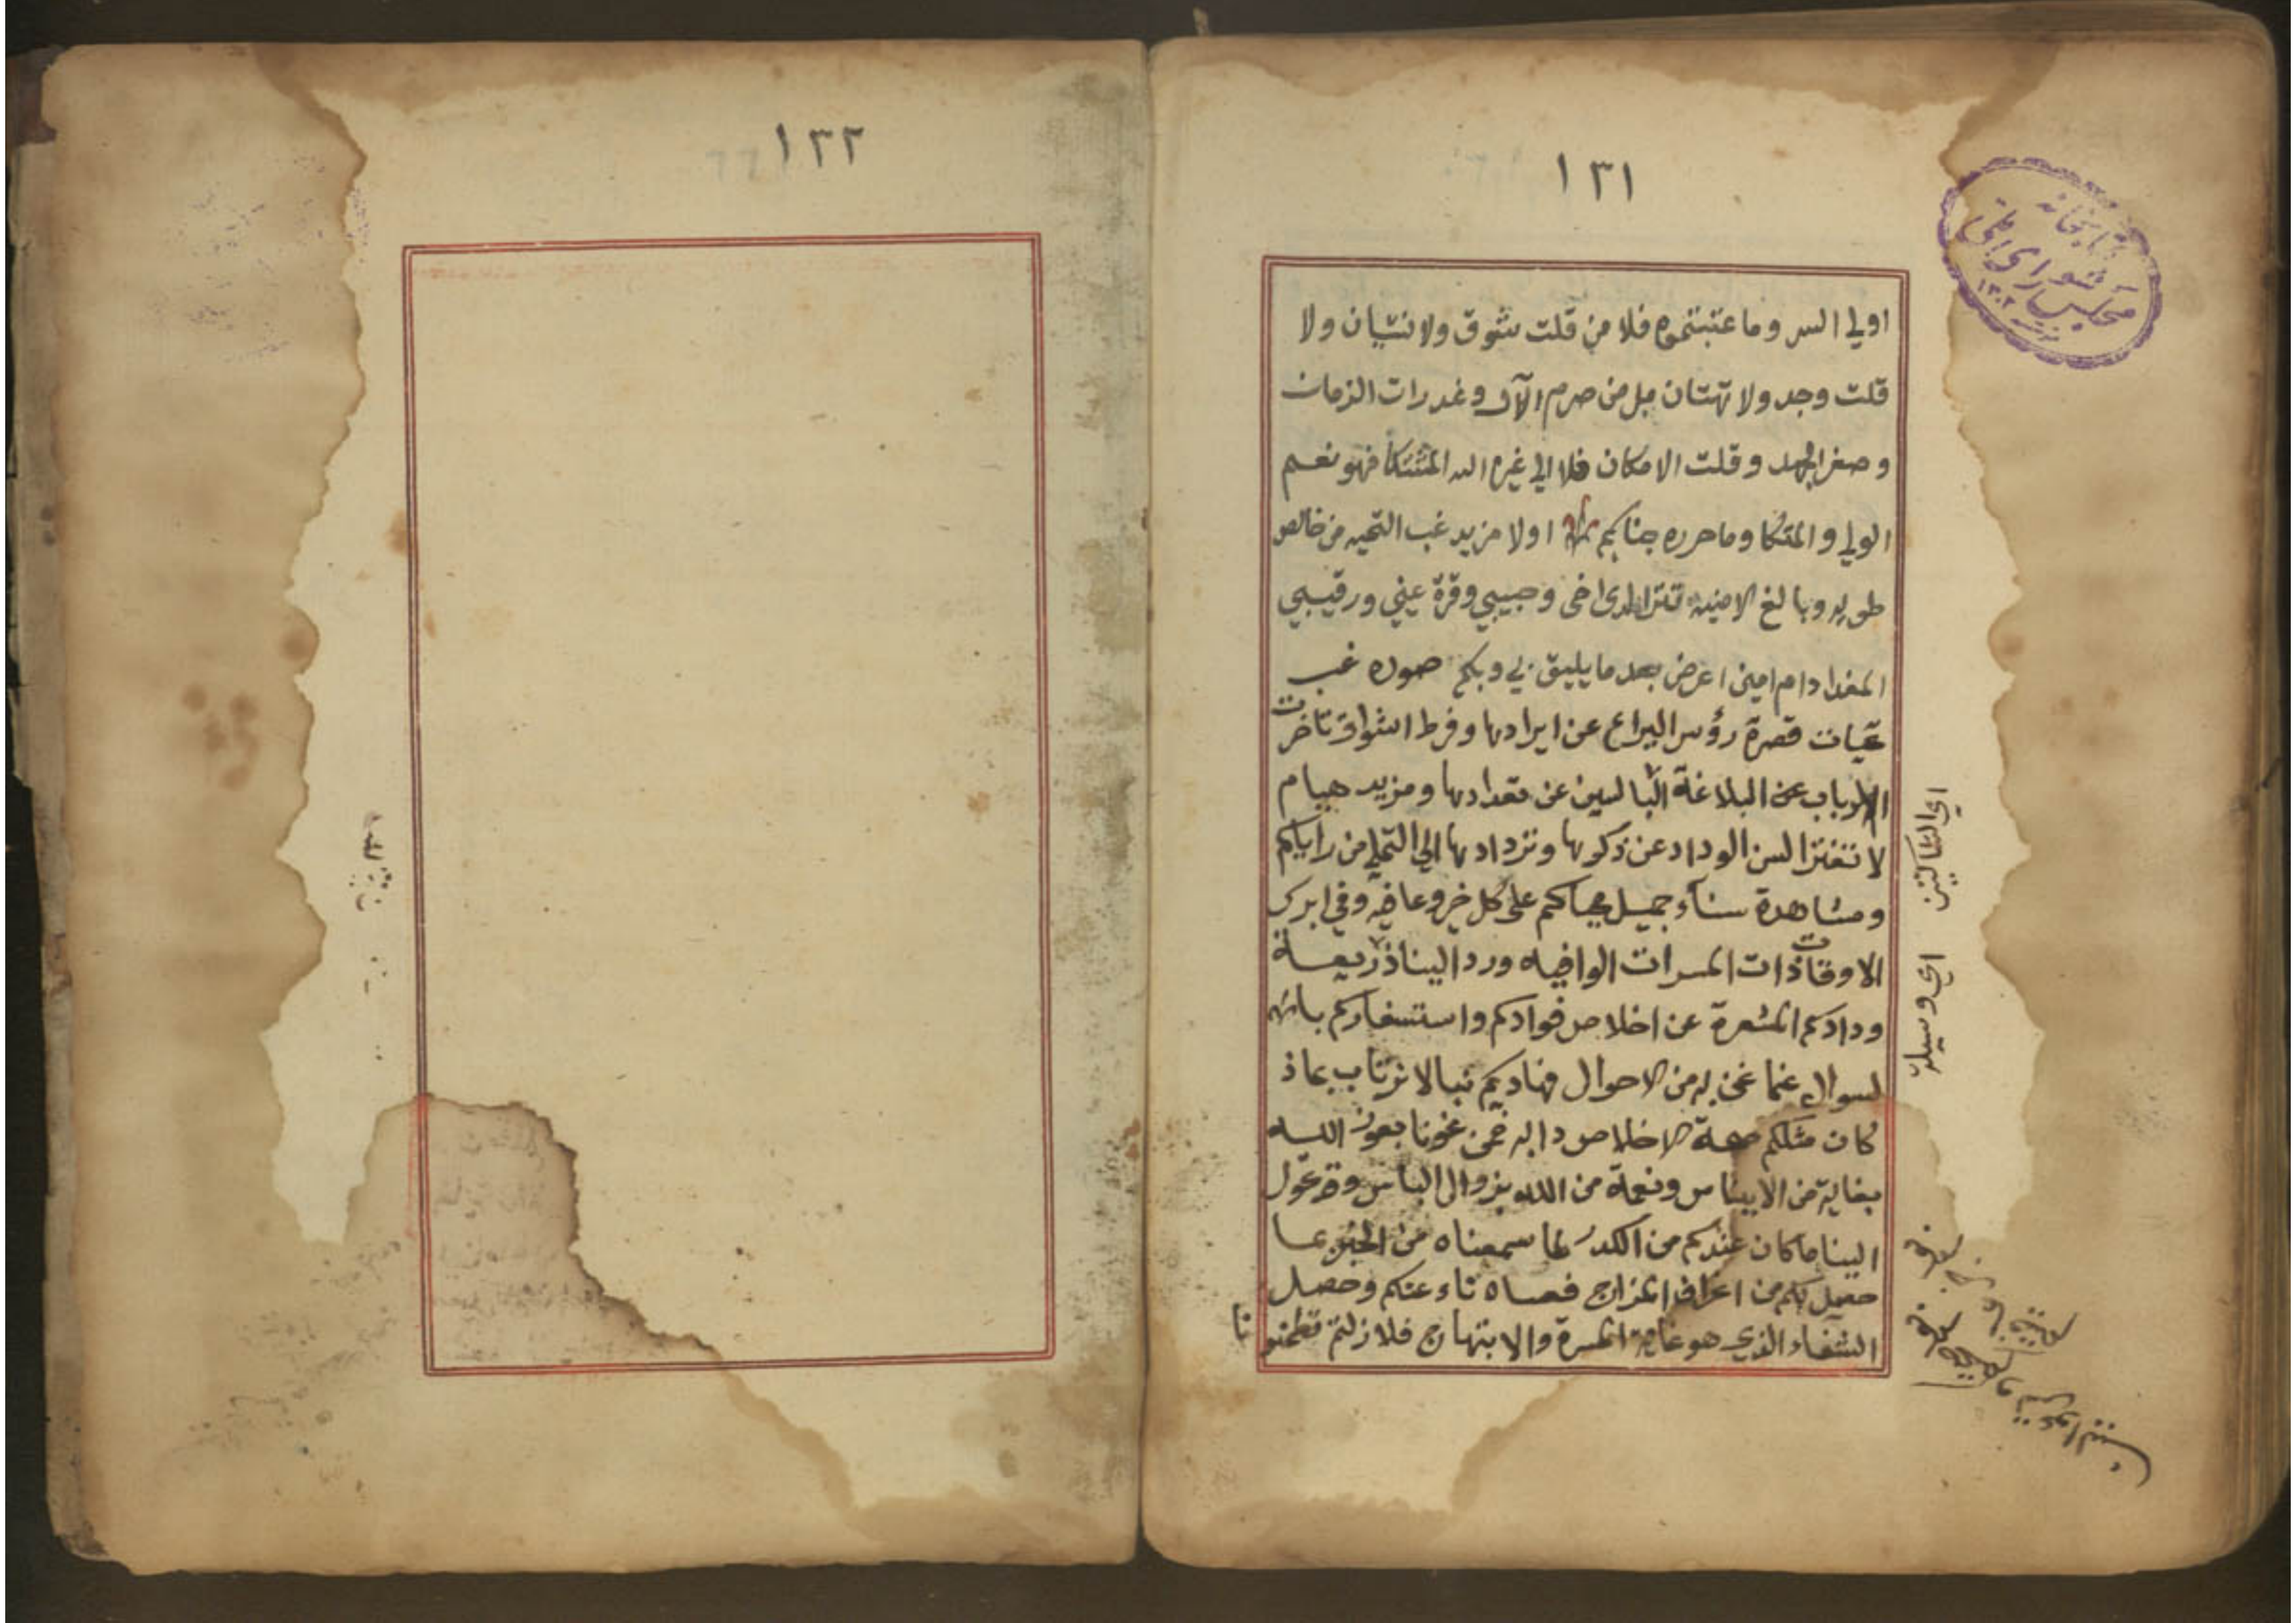 ١٣١
كتابخانه
مجلس شورای ملی
١٣٠٢
اولي السر وما عتبتموه فلا من قلت شوق ولا نسيان ولا
قلت وجد ولا تهتان بل من صرم الآن وغدرات الزمان
وصغر الجهد وقلت الامكان فلا الي غيره الله المشتكا فهو نعم
الولي والمتكا وما حرره جنابكم اولا مزيد غب التحيه من خالص
طويه وبالغ الامنيه تترا لدى اخي وحبيبي وقرة عيني ورقيبي
المفدا دام امين اعرض بعد ما يليق بي وبكم صوره غب
تحيات قصرة رؤس اليراع عن ايرادها وفرط اشواق تاخرت
الارباب عن البلاغة البالسين عن تعدادها ومزيد هيام
لا تفتر السن الوداد عن ذكرها وتردادها الي التملي من راياكم
ومشاهدة سناء جميل محياكم على كل خير وعافيه وفي ابرك
الاوقات ذات المسرات الوافيه ورد الينا ذريعة
ودادكم المشعرة عن اخلاص فوادكم واستسفاركم
لسوال عنا نحن به من الاحوال فناديكم نبا لا نرتاب بماذ
كان مثلكم صحة الاخلاص دابه فنحن نحونا بعون الله
بغاية من الايناس ونعمة من الله بزوال الباس وقد عول
الينا ما كان عندكم من الكدر لما سمعناه من الخبر بما
حصل لكم من انحراف المزاج فعساه ناء عنكم وحصل
الشفاء الذي هو غاية المسرة والابتهاج فلا زلتم تطمنونا
اي الساكنين
اي وسيلة
١٣٢